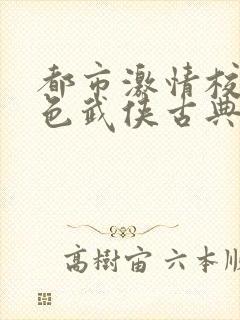 都市激情校
色武侠古典
高樹宙 六本順